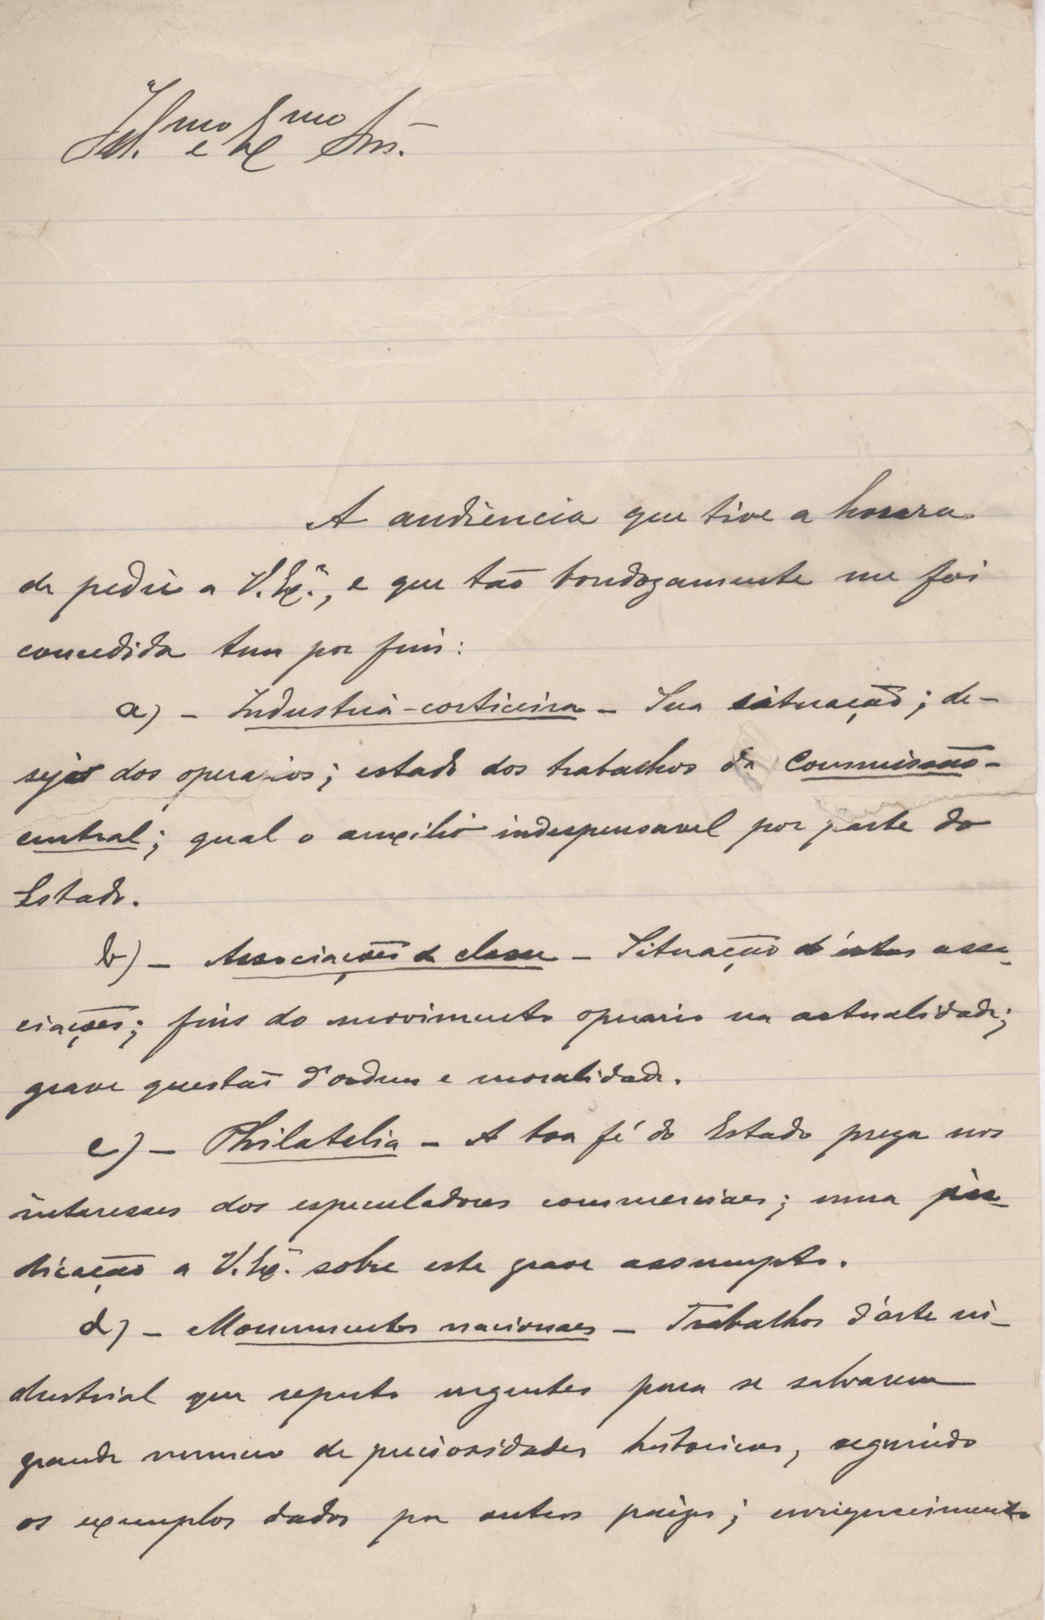 Ill.mo e Ex.mo Snr.
A audiencia que tive a honra
de pedir a V. Ex.ª, e que tão bondozamente me foi
concedida tem por fins:
a) - Industria-corticeira - Sua situação; de-
sejos dos operarios; estado dos trabalhos da Commissão-
central; qual o auxilio indispensavel por parte do
Estado.
b) - Associações de classe - Situação d'estas asso-
ciações; fins do movimento operario na actualidade;
grave questão d'ordem e moralidade.
c) - Philatelia - A boa fé do Estado preza nos
interesses dos especuladores commerciaes; uma in-
dicação a V. Ex.ª sobre este grave assumpto.
d) - Monumentos nacionaes - Trabalhos d'arte in-
dustrial que reputo urgentes para se salvarem
grande numero de preciosidades historicas, seguindo
os exemplos dados por outros paizes; enriquecimento